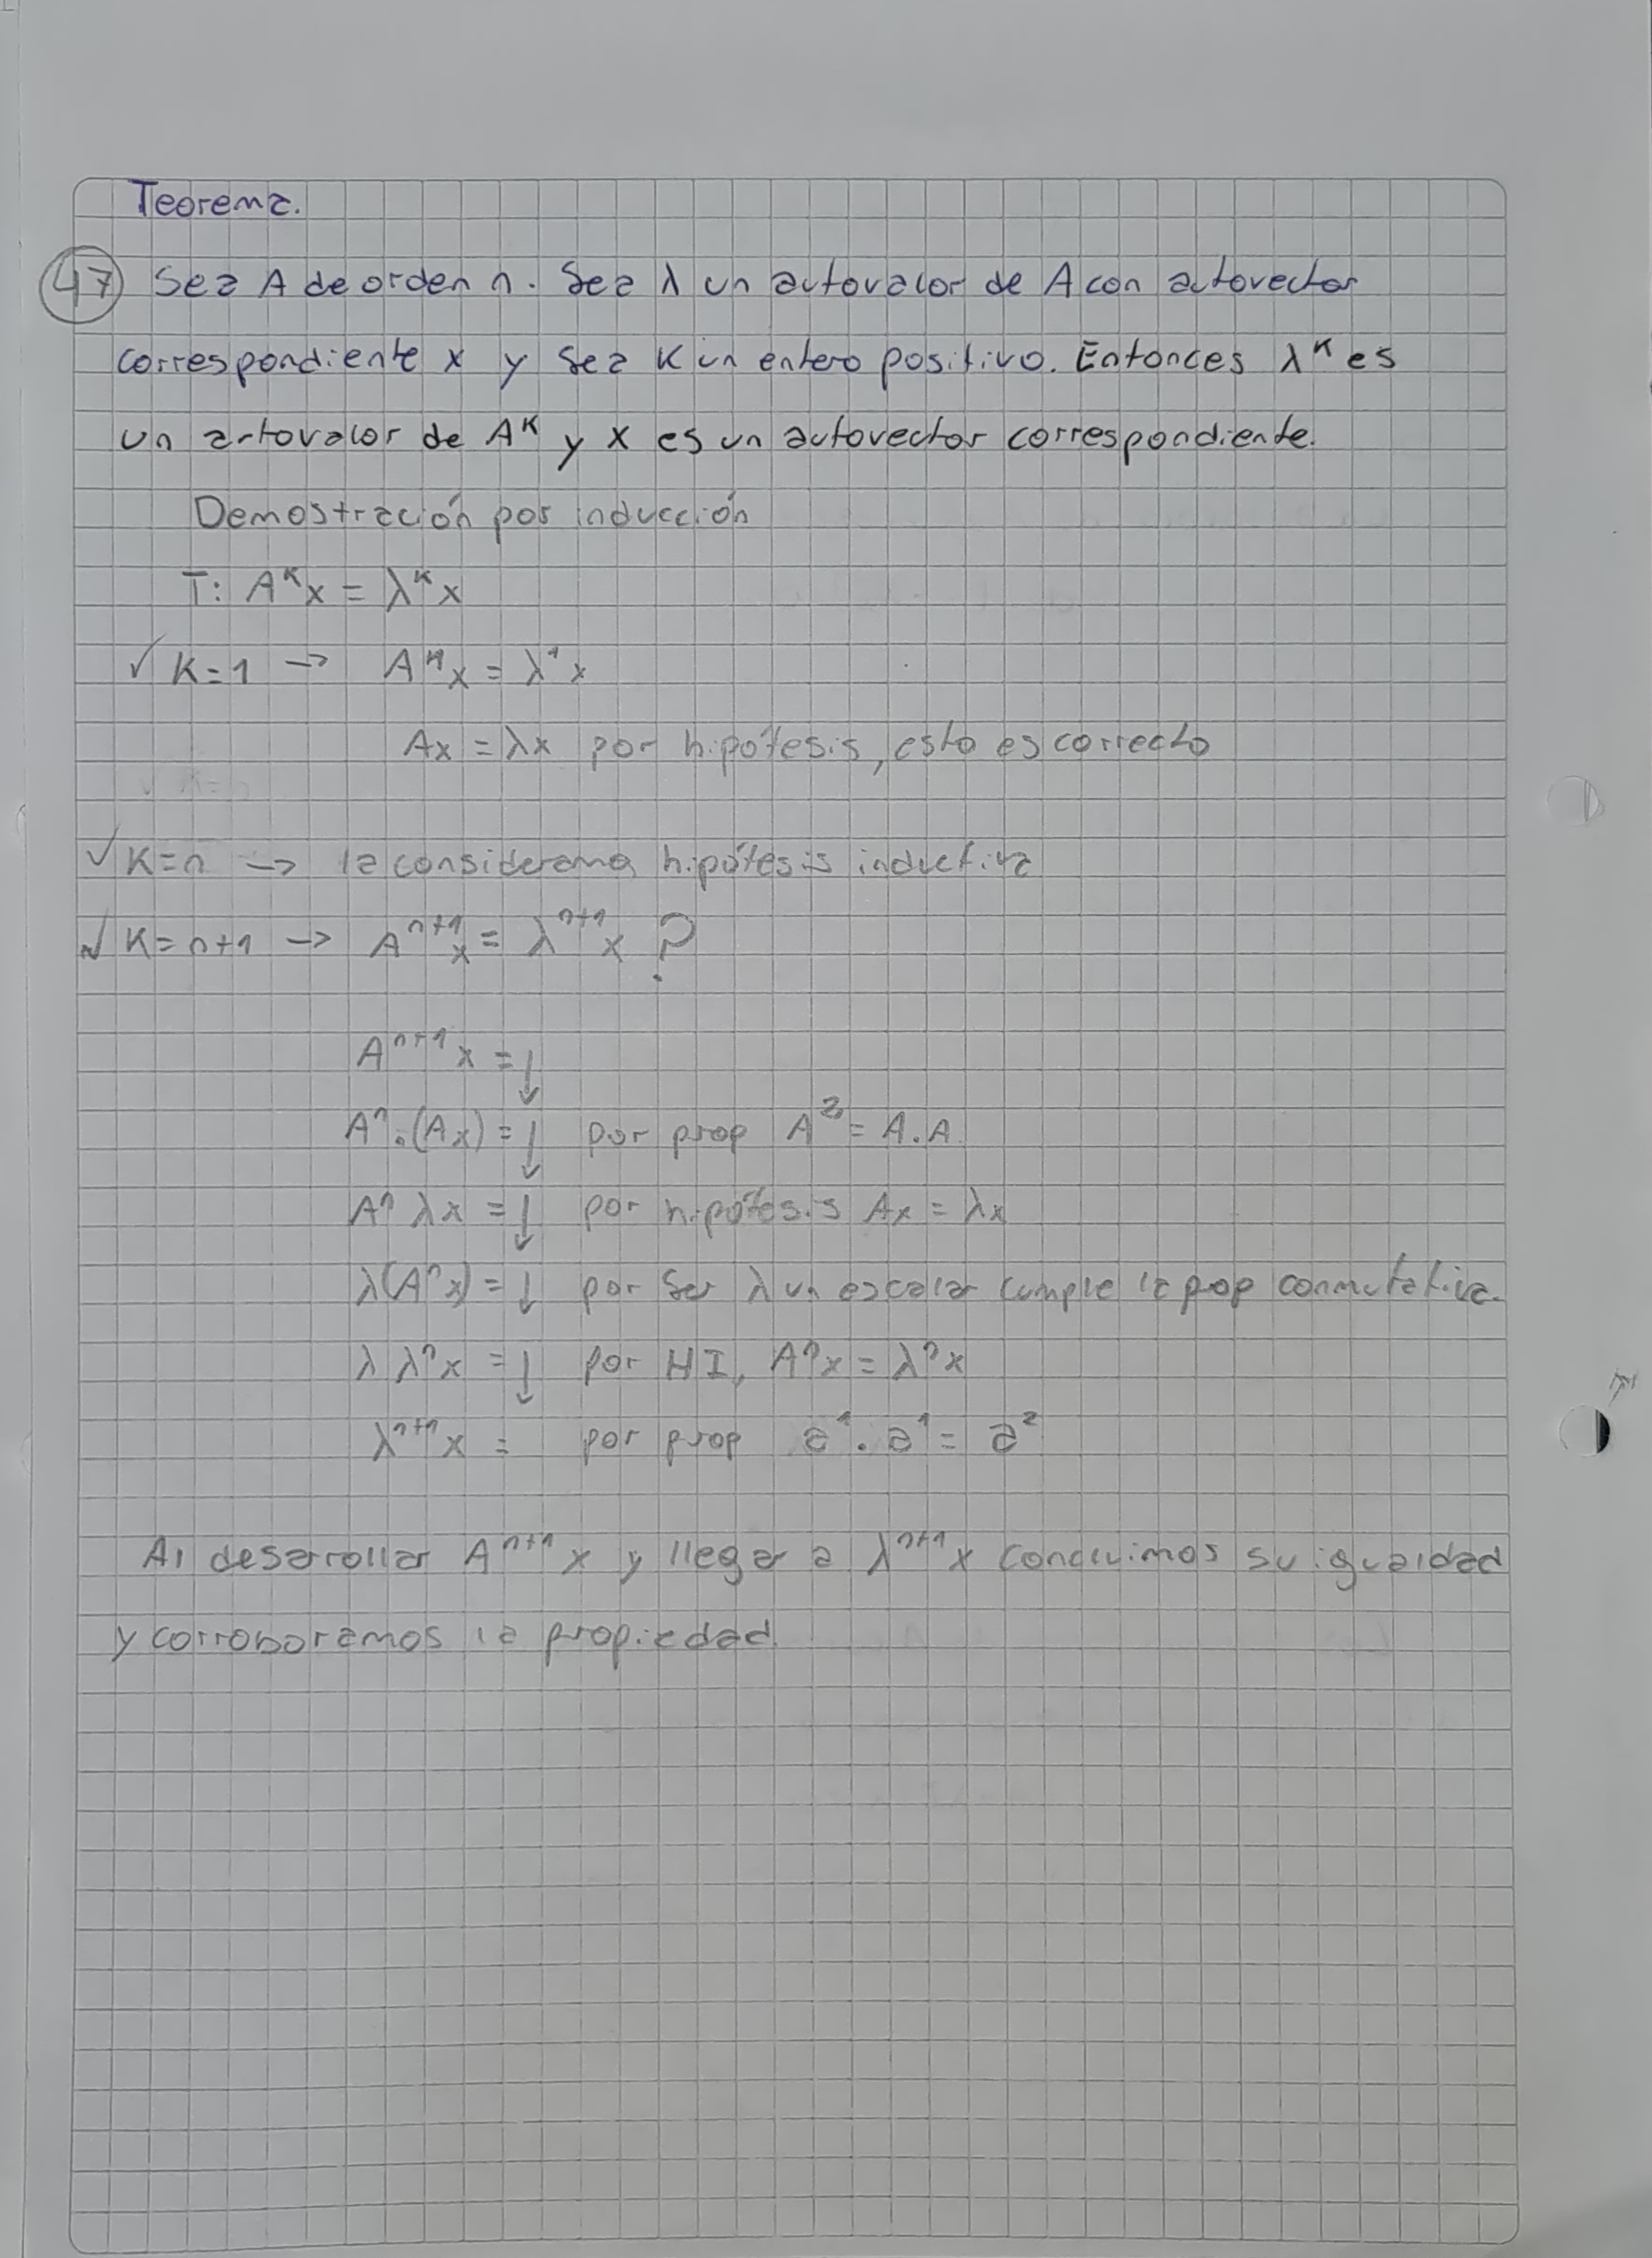 Teorema.
47 Sea A de orden n. Sea λ un autovalor de A con autovector
correspondiente x y sea K un entero positivo. Entonces λ^K es
un autovalor de A^K y X es un autovector correspondiente.
Demostración por inducción
T: A^K x = λ^K x
✓ K=1 → A^1 x = λ^1 x
Ax = λx por hipótesis, esto es correcto
✓ K=n → la consideramos hipótesis inductiva
✓ K=n+1 → A^{n+1} x = λ^{n+1} x ?
A^{n+1} x = ↓
A^n.(Ax) = ↓ por prop A^2 = A.A
A^n λx = ↓ por hipótesis Ax = λx
λ(A^n x) = ↓ por ser λ un escalar cumple la prop conmutativa.
λ λ^n x = ↓ por HI, A^n x = λ^n x
λ^{n+1} x = por prop a^1 . a^1 = a^2
Al desarrollar A^{n+1} x y llegar a λ^{n+1} x concluimos su igualdad
y corroboramos la propiedad.